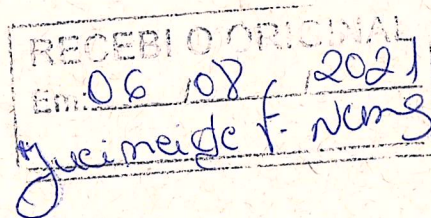 RECEBI O ORIGINAL
Em: 06 / 08 / 2021
Jucineide F. Nunes